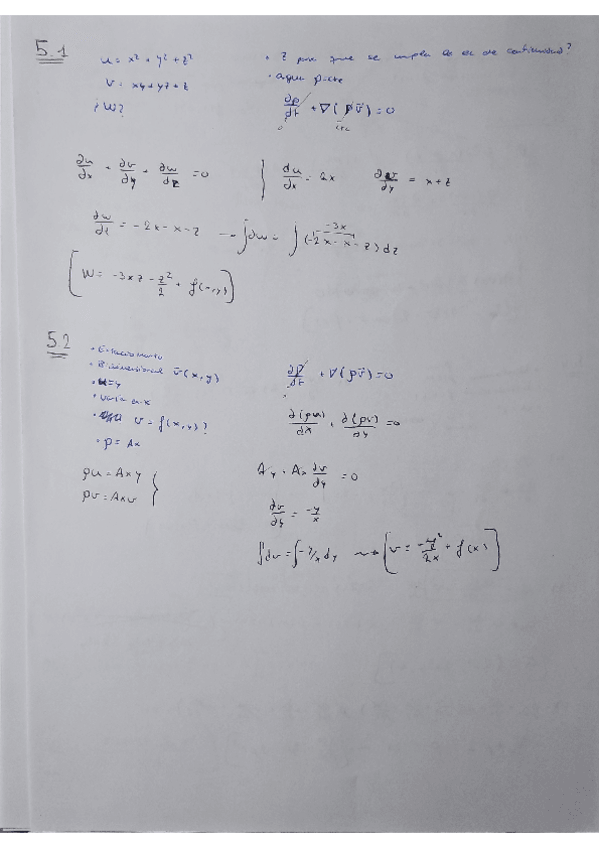 5.1
u = x² + y² + z²
v = xy + yz + z
¿W?
• ¿ para que se cumpla la ec de continuidad?
• agua ρ=cte
∂ρ/∂t + ∇(ρv̄) = 0
0
cte
∂u/∂x + ∂v/∂y + ∂w/∂z = 0 } du/dx = 2x ∂v/∂y = x+z
∂w/∂z = -2x - x - z → ∫dw = ∫(-2x - x - z) dz
-3x
[W = -3xz - z²/2 + f(x,y)]
5.2
• Estacionario
• Bidimensional v̄(x,y)
• u=y
• varía en x
• v = f(x,y)?
• ρ = Ax
ρu = Axy
ρv = Axv }
∂ρ/∂t + ∇(ρv̄) = 0
∂(ρu)/∂x + ∂(ρv)/∂y = 0
Ay + Ax ∂v/∂y = 0
∂v/∂y = -y/x
∫dv = ∫-y/x dy → [v = -y²/2x + f(x)]